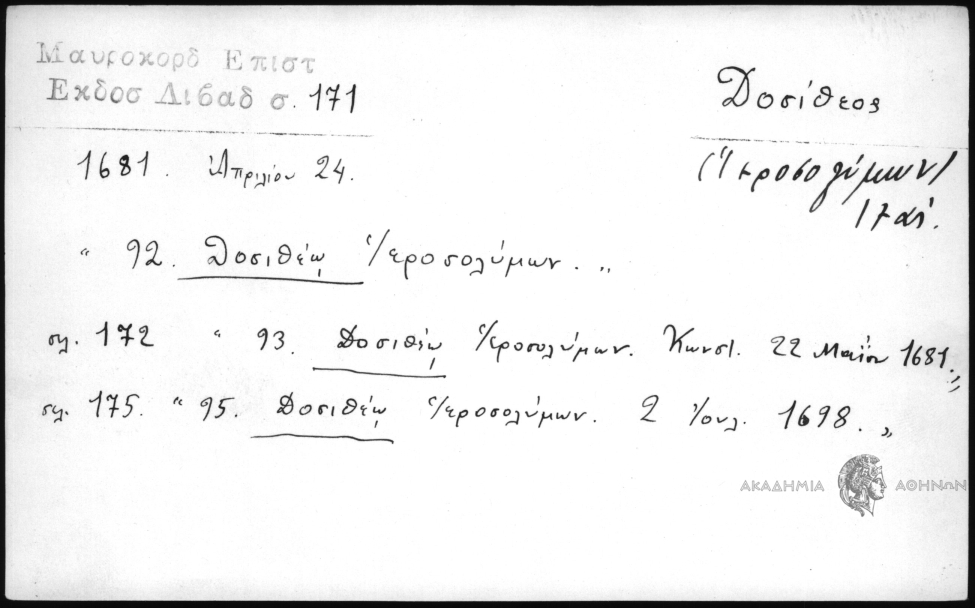 Μαυροκορδ Επιστ
Εκδοσ Λιβαδ σ. 171
Δοσίθεος
(Ἱεροσολύμων)
17 αἰ.
1681. Ἀπριλίου 24.
“ 92. Δοσιθέῳ Ἱεροσολύμων. „
σελ. 172 “ 93. Δοσιθέῳ Ἱεροσολύμων. Κωνστ. 22 Μαΐου 1681. „
σελ. 175. “ 95. Δοσιθέῳ Ἱεροσολύμων. 2 Ἰουλ. 1698. „
ΑΚΑΔΗΜΙΑ ΑΘΗΝΩΝ